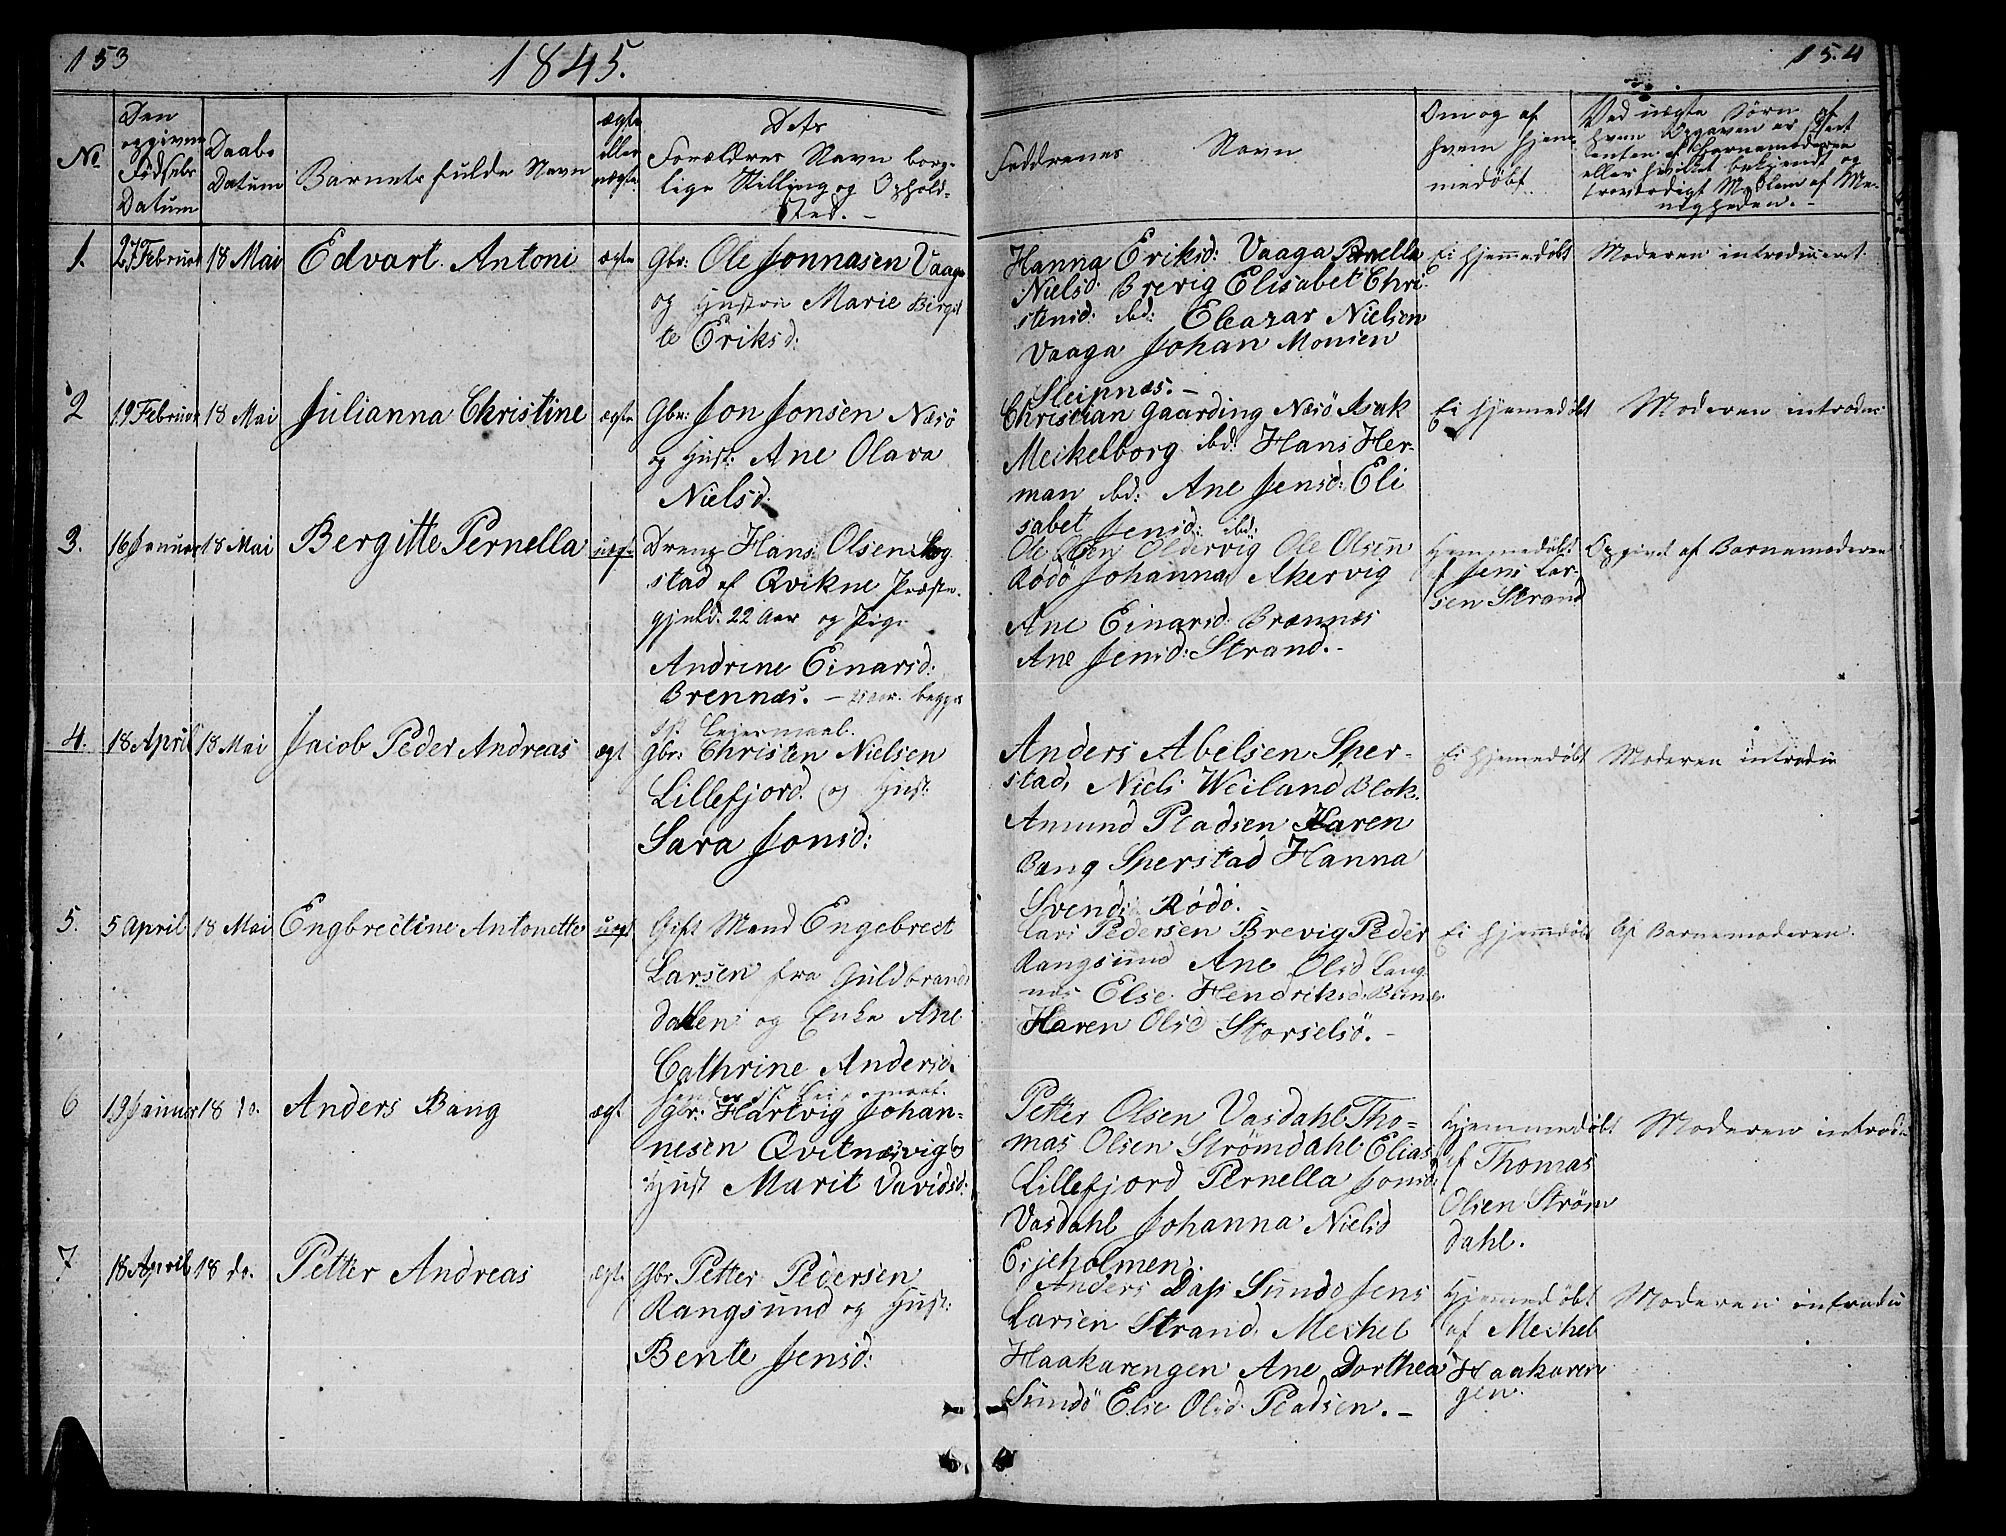 153
1845.
154
No.
Den opgivne Fødsels Datum
Daabs Datum
Barnets fulde Navn
ægte eller uægte
Dets Forældres Navn borg-
lige Stilling og Ophold-
sted. -
Faddrenes Navn
Om og af
hvem hjem-
medøbt.
Ved uægte Børn af
hvem Opgaven er skeet
enten af Barnemoderen
eller hvilket bekjendt og
troværdigt Medlem af Me-
nigheden. -
1.
27 Februar
18 Mai
Edvart Antoni
ægte
Gbr: Ole Jonnasen Vaaga
og Hustru Marie Birgit
te Eriksd:
Hanna Eriksd: Vaaga Pernella
Nielsd: Brevig Elisabet Chri
stensd: ibd: Eleazar Nielsen
Vaaga Johan Monsen
Sleipnæs. -
Ei Hjemmedøbt
Moderen introduceret
2
19 Februar
18 Mai
Julianna Christine
ægte
Gbr: Jon Jonsen Næsø
og Hust: Ane Olava
Nielsd:
Christian Gaarding Næsø Isak
Meikelborg ibd: Hans Her-
man ibd: Ane Jensd: Eli
sabet Jensd: ibd:
Ei Hjemedøbt
Moderen introdu
3.
16 Januar
18 Mai
Bergitte Pernella
uægt
Dreng Hans Olsen Log
stad af Qvikne Præste-
gjeld. 22 Aar og Pige
Andrine Einarsd:
Brennæs. - Aar. begges
1st Leiermaal.
Ole Olsen Oldervig Ole Olsen
Rødø Johanna Akervig
Ane Einarsd: Brænnæs
Ane Jensd: Strand. -
Hjemmedøbt
af Jens Lar-
sen Strand
Opgivet af Barnemoderen
4.
18 April
18 Mai
Jacob Peder Andreas
ægt
Gbr: Christen Nielsen
Lillefjord og Hust:
Sara Jonsd:
Anders Abelsen Sper-
stad, Niels Weiland Blok.
Amund Pladsen Karen
Bang Sperstad Hanna
Svendsd: Rødø. -
Ei Hjemedøbt
Moderen introdu
5.
5 April
18 Mai
Engbrectine Antonette
uægt
Gift Mand Engebrect
Larsen fra Guldbrands
dalen og Enke Ane
Cathrine Andersd.
hendes 1st Leiermaal.
Lars Pedersen Brevig Peder
Rangsund Ane Olsd Lang
næs Else Hendriksd:
Karen Olsd Storselsø. -
Ei Hjemdøbt
Af Barnemoderen.
6
19 Januar
18 do.
Anders Bang
ægt.
Gbr: Hartvig Johan-
nesen Qvitnæsvig og
Hust Marit Davidsd:
Petter Olsen Vasdahl Tho-
mas Olsen Strømdahl Elias
Lillefjord Pernella Jonsd:
Vasdahl Johanna Nielsd
Erjeholmen.
Hjemmedøbt
af Thomas
Olsen Strøm
dahl.
Moderen introdu
7
18 April
18 do.
Petter Andreas
ægt.
Gbr. Petter Pedersen
Rangsund og Hust:
Bente Jensd:
Anders Dass Sundø Jens
Larsen Strand. Mechel
Haakarengen Ane Dorthea
Sundø Else Olsd. Pladsen. -
Hjemedøbt
af Mechel
Haakaren
gen.
Moderen introdu